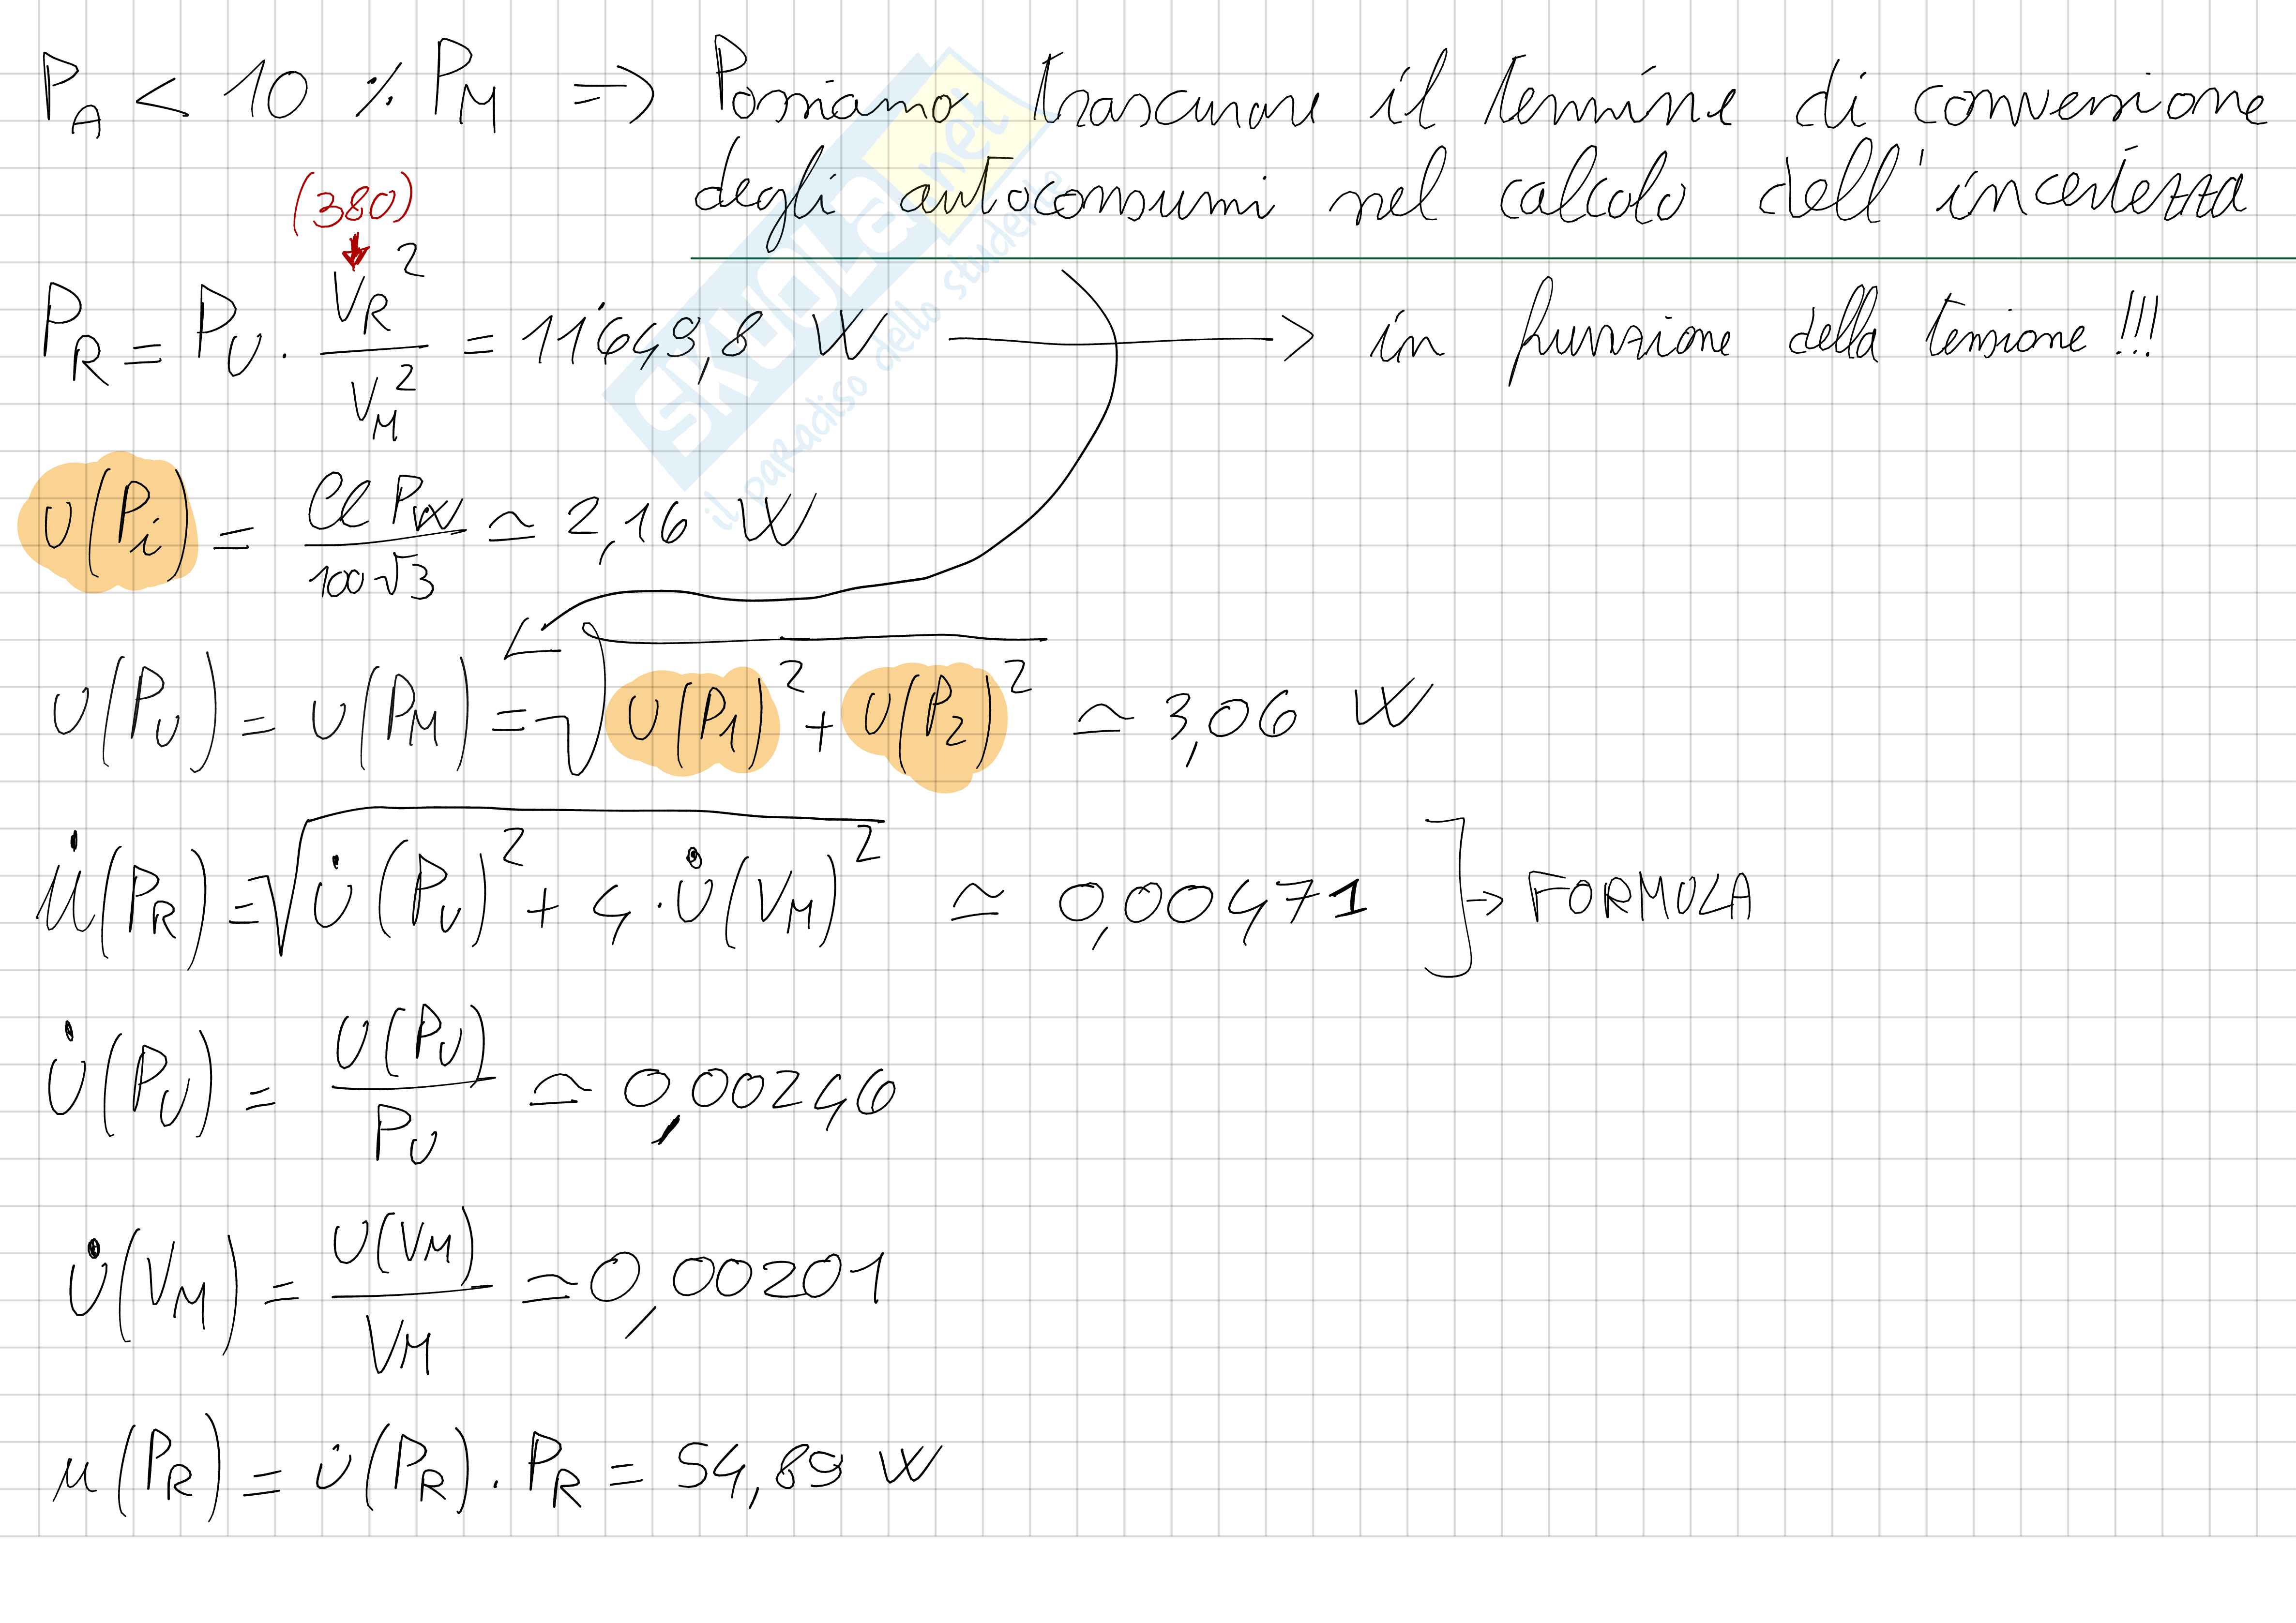 P_A < 10 % P_M => Possiamo trascurare il termine di conversione
degli autoconsumi nel calcolo dell'incertezza
(380)
P_R = P_U · V_R² / V_M² = 11'649,8 W → in funzione della tensione !!!
U(P_i) = Cl P_W / 100√3 ≃ 2,16 W
U(P_U) = U(P_M) = √(U(P_1)² + U(P_2)²) ≃ 3,06 W
u̇(P_R) = √(U̇(P_U)² + 4 · U̇(V_M)²) ≃ 0,00471 ] → FORMULA
U̇(P_U) = U(P_U) / P_U ≃ 0,00246
U̇(V_M) = U(V_M) / V_M ≃ 0,00201
u(P_R) = u̇(P_R) · P_R = 54,89 W
SKUOLa.net
il paradiso dello studente